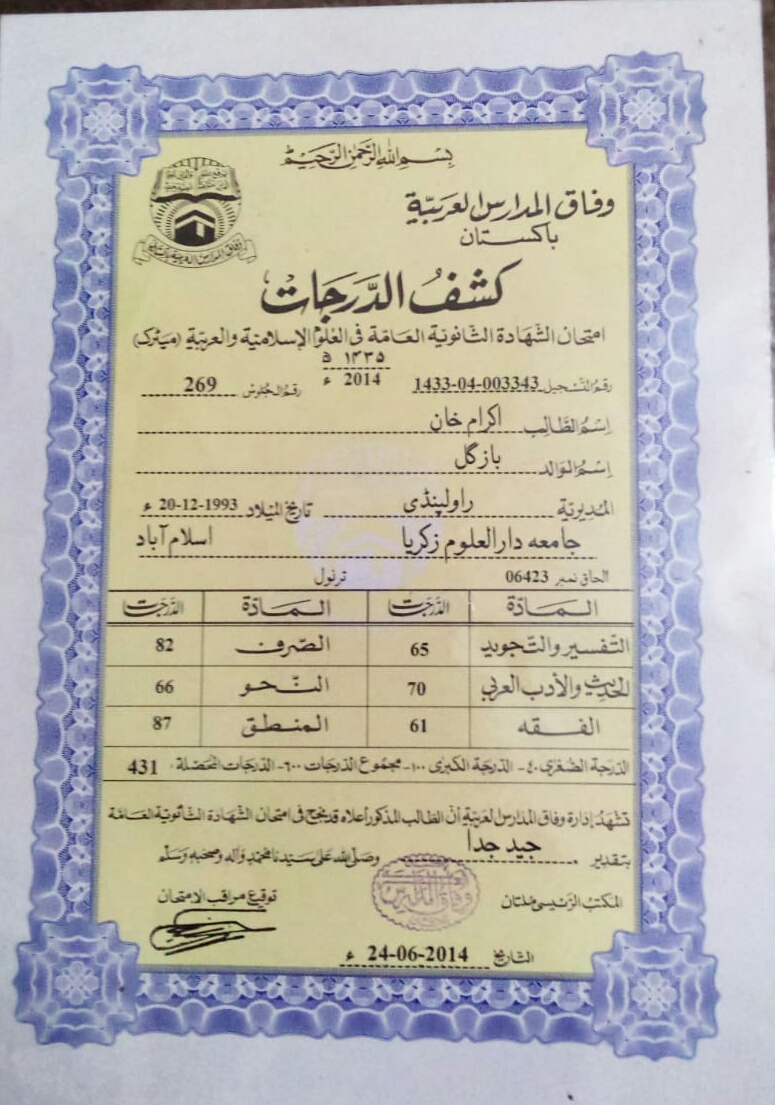 بِسْمِ اللهِ الرَّحْمٰنِ الرَّحِيْمِ
وفاق المدارس العربيّة
باكستان
كشفُ الدَّرَجَاتْ
امتحان الشّهادة الثّانويّة العامّة فى العُلُوم الإسلاميّة والعربيّة (ميٹرک)
۱۴۳۵ ھ
رقمُ التّسجيل 1433-04-003343
2014 ء
رقمُ الجُلوس 269
اِسْمُ الطَّالِب اکرام خان
اِسْمُ الوَالد بازگل
المُديريّة راولپنڈی
تاريخُ الميلاد 20-12-1993 ء
جامعه دارالعلوم زکریا اسلام آباد
الحاق نمبر 06423 ترنول
المَادّة الدّرجَات المَادّة الدّرجَات
التّفسير والتّجويد 65 الصّرف 82
الحَديث والأدب العربي 70 النّحو 66
الفقه 61 المنطق 87
الدّرجة الصُّغرى ۴۰- الدّرجة الكبرى ۱۰۰- مجمُوع الدّرجات ۶۰۰- الدّرجات المُحَصّلة 431
تشهَدُ إدارة وفاق المدارس العَربيّة أنّ الطالب المذكور أعلاه قد نجح فى امتحان الشّهادة الثّانويّة العَامّة
بتقدير جيد جدا وصَلّى الله عَلى سَيّدنا محمّدٍ وآله وصحبه وسَلّم
المكتب الرّئيسى مُلتان
توقيعُ مراقب الامتحان
التّاريخ 24-06-2014 ء